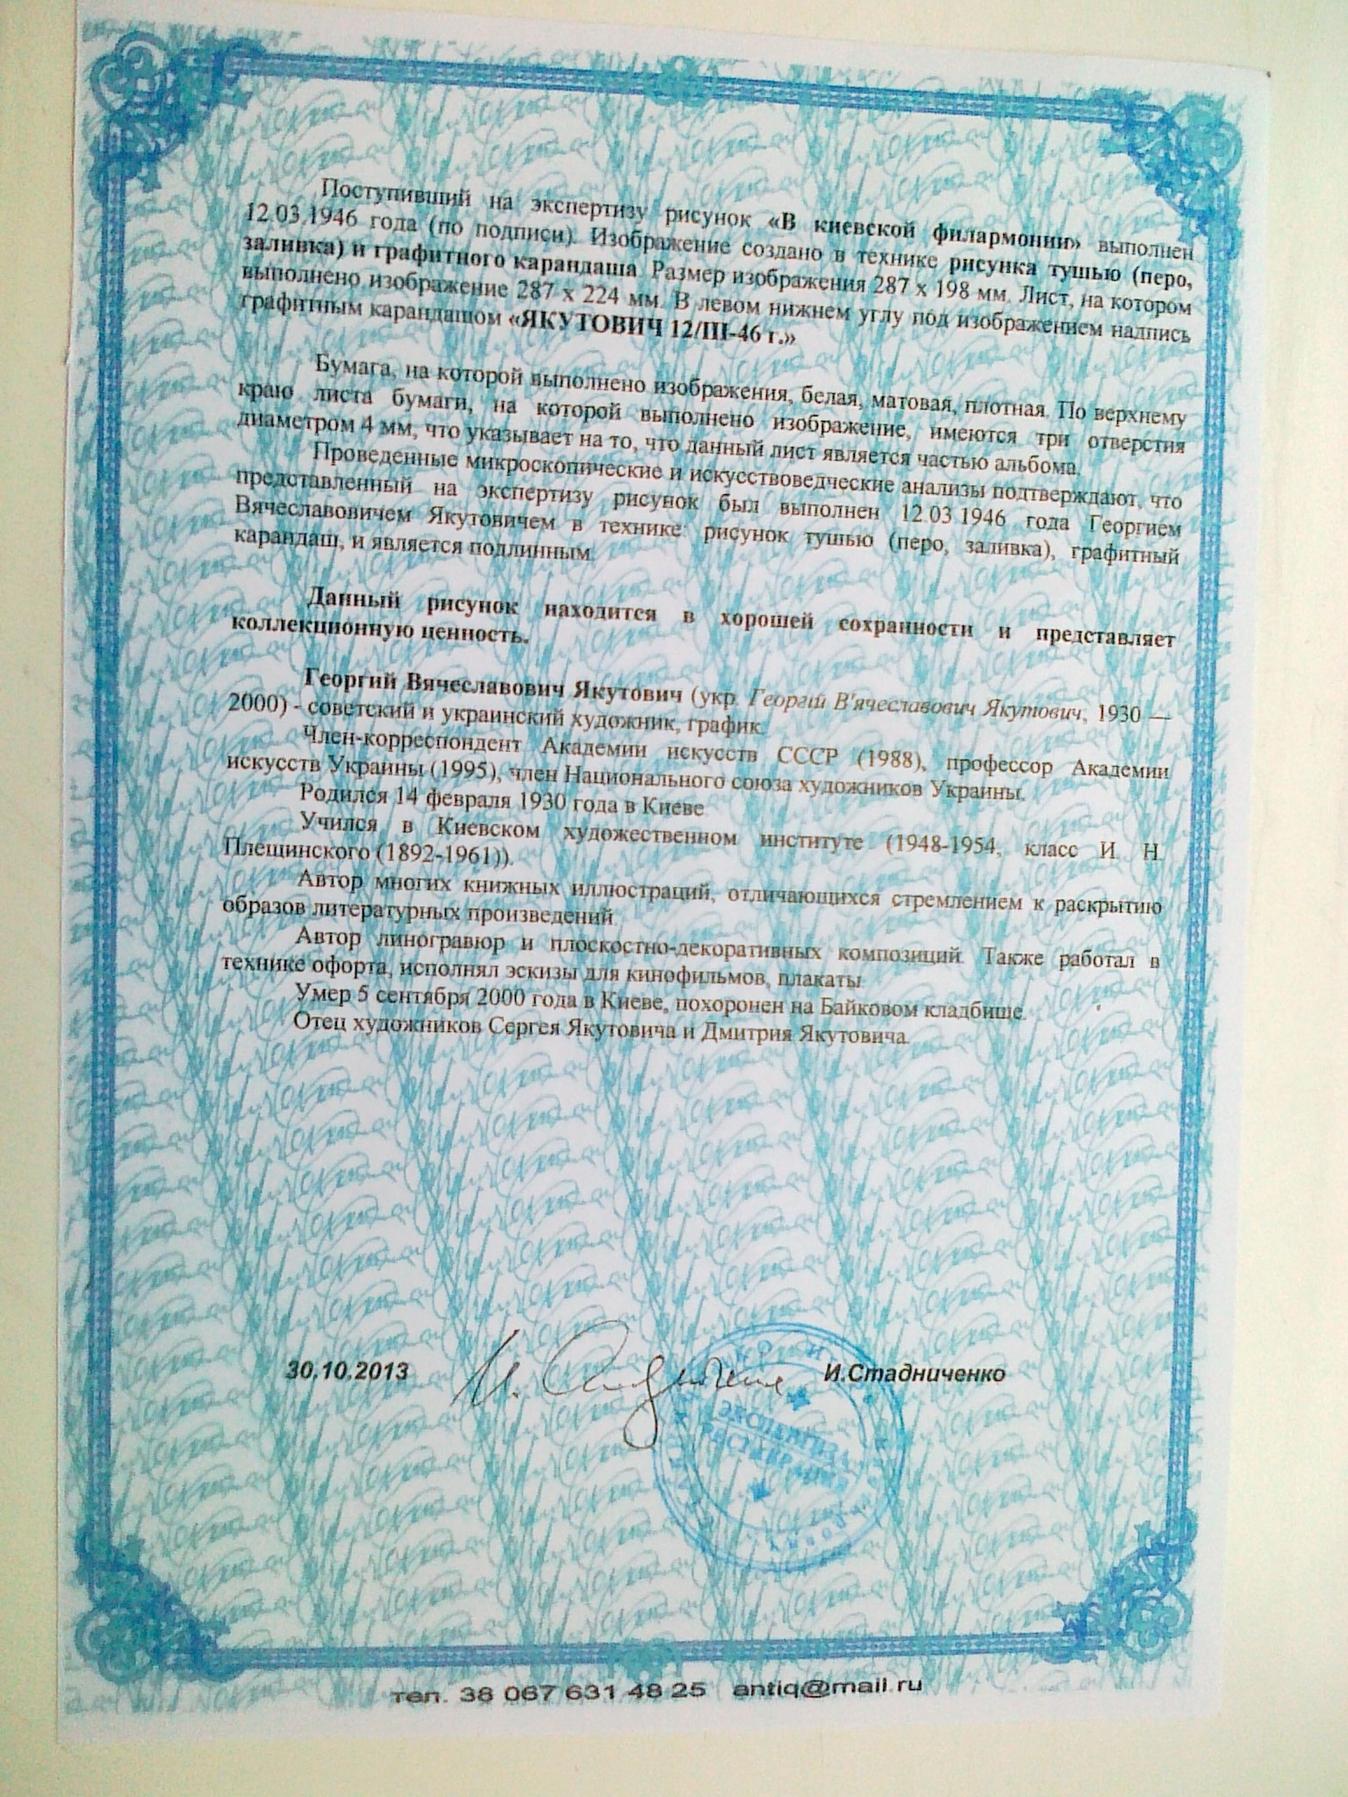 Поступивший на экспертизу рисунок «В киевской филармонии» выполнен
12.03.1946 года (по подписи). Изображение создано в технике рисунка тушью (перо,
заливка) и графитного карандаша. Размер изображения 287 х 198 мм. Лист, на котором
выполнено изображение 287 х 224 мм. В левом нижнем углу под изображением надпись
графитным карандашом «ЯКУТОВИЧ 12/III-46 г.»
Бумага, на которой выполнено изображения, белая, матовая, плотная. По верхнему
краю листа бумаги, на которой выполнено изображение, имеются три отверстия
диаметром 4 мм, что указывает на то, что данный лист является частью альбома.
Проведенные микроскопические и искусствоведческие анализы подтверждают, что
представленный на экспертизу рисунок был выполнен 12.03.1946 года Георгием
Вячеславовичем Якутовичем в технике: рисунок тушью (перо, заливка), графитный
карандаш, и является подлинным.
Данный рисунок находится в хорошей сохранности и представляет
коллекционную ценность.
Георгий Вячеславович Якутович (укр. Георгій В'ячеславович Якутович; 1930 —
2000) - советский и украинский художник, график.
Член-корреспондент Академии искусств СССР (1988), профессор Академии
искусств Украины (1995), член Национального союза художников Украины.
Родился 14 февраля 1930 года в Киеве.
Учился в Киевском художественном институте (1948-1954, класс И. Н.
Плещинского (1892-1961)).
Автор многих книжных иллюстраций, отличающихся стремлением к раскрытию
образов литературных произведений.
Автор линогравюр и плоскостно-декоративных композиций. Также работал в
технике офорта, исполнял эскизы для кинофильмов, плакаты.
Умер 5 сентября 2000 года в Киеве, похоронен на Байковом кладбище.
Отец художников Сергея Якутовича и Дмитрия Якутовича.
30.10.2013 И.Стадниченко
ЭКСПЕРТИЗА
РЕСТАВРАЦИЯ
тел. 38 067 631 48 25 antiq@mail.ru